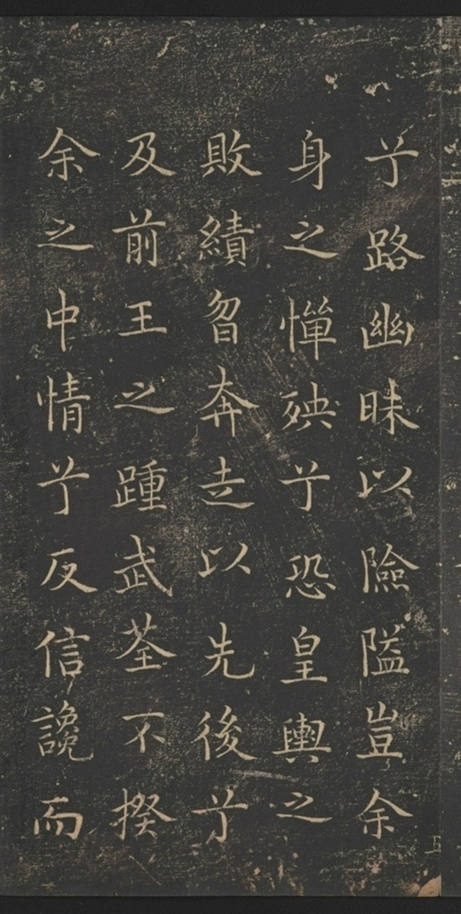 兮路幽昧以險隘豈余
身之憚殃兮恐皇輿之
敗績曶奔走以先後兮
及前王之踵武荃不揆
余之中情兮反信讒而